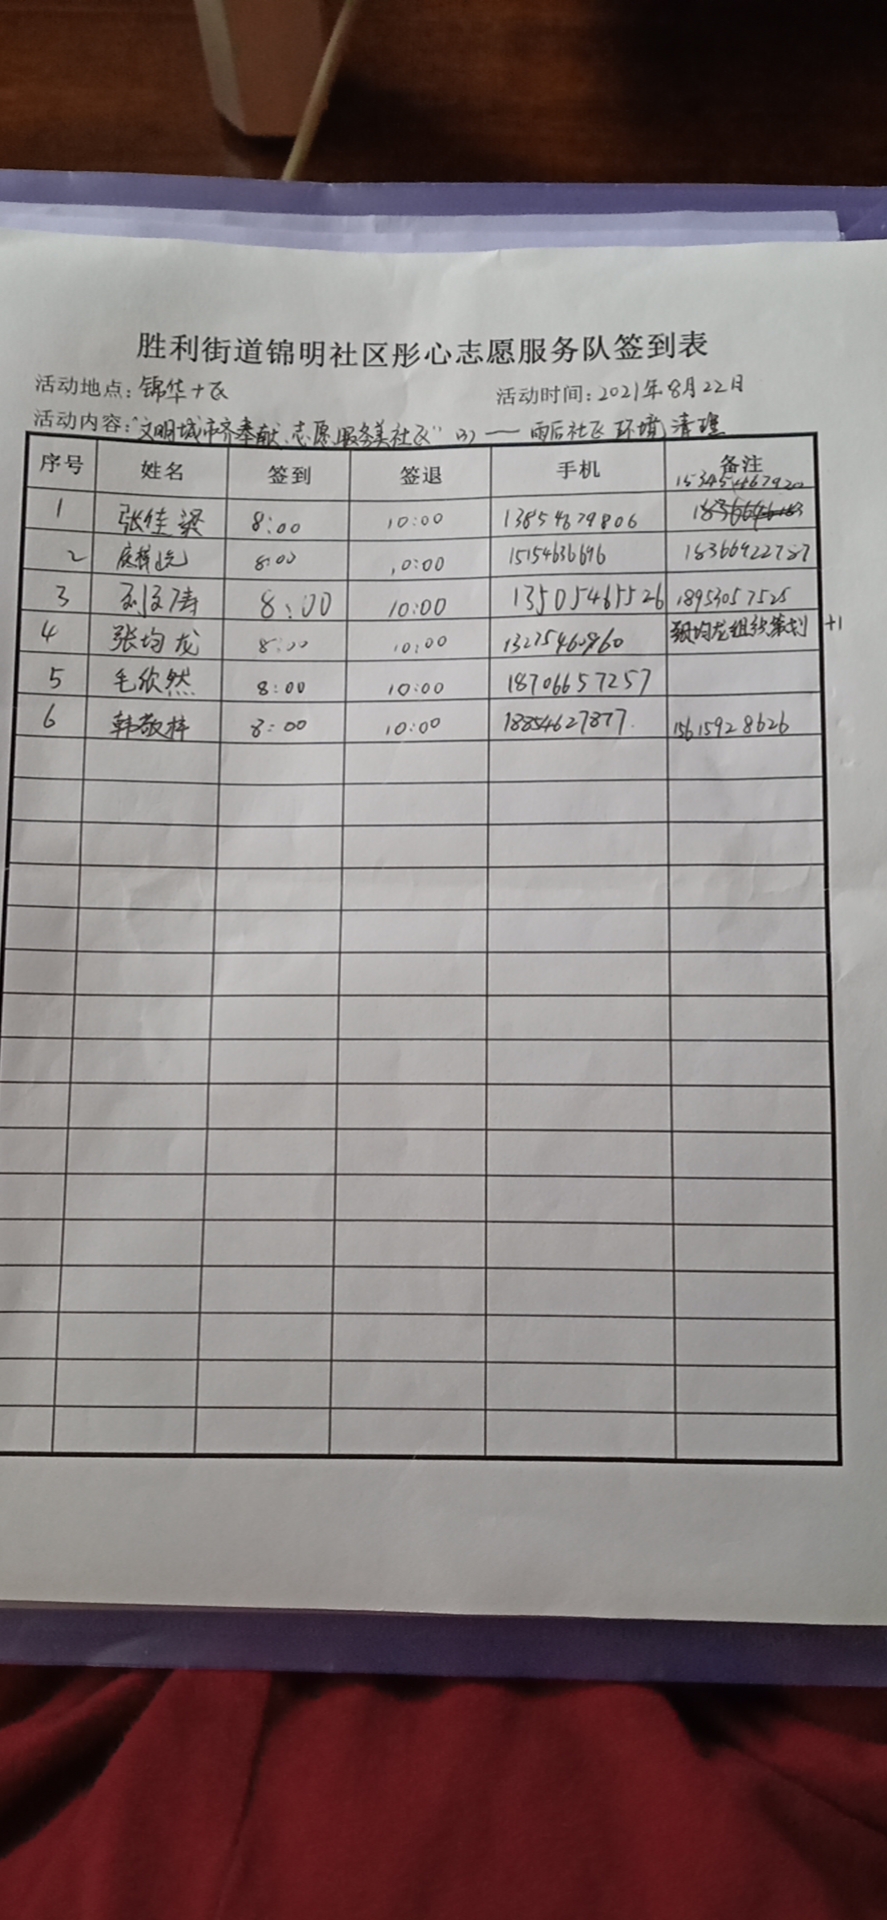 胜利街道锦明社区彤心志愿服务队签到表
活动地点：锦华十区 活动时间：2021年8月22日
活动内容："文明城市齐奉献、志愿服务美社区" (3) —— 雨后社区环境清理
序号 姓名 签到 签退 手机 备注
15345467920
1 张佳梁 8:00 10:00 13854679806
2 8:00 10:00 15154636696 18366922787
3 8:00 10:00 13505465526 18953057525
4 张均龙 8:00 10:00 13275460960 张均龙组织策划 +1
5 毛欣然 8:00 10:00 18706657257
6 韩敬梓 8:00 10:00 18854627877. 15615928626